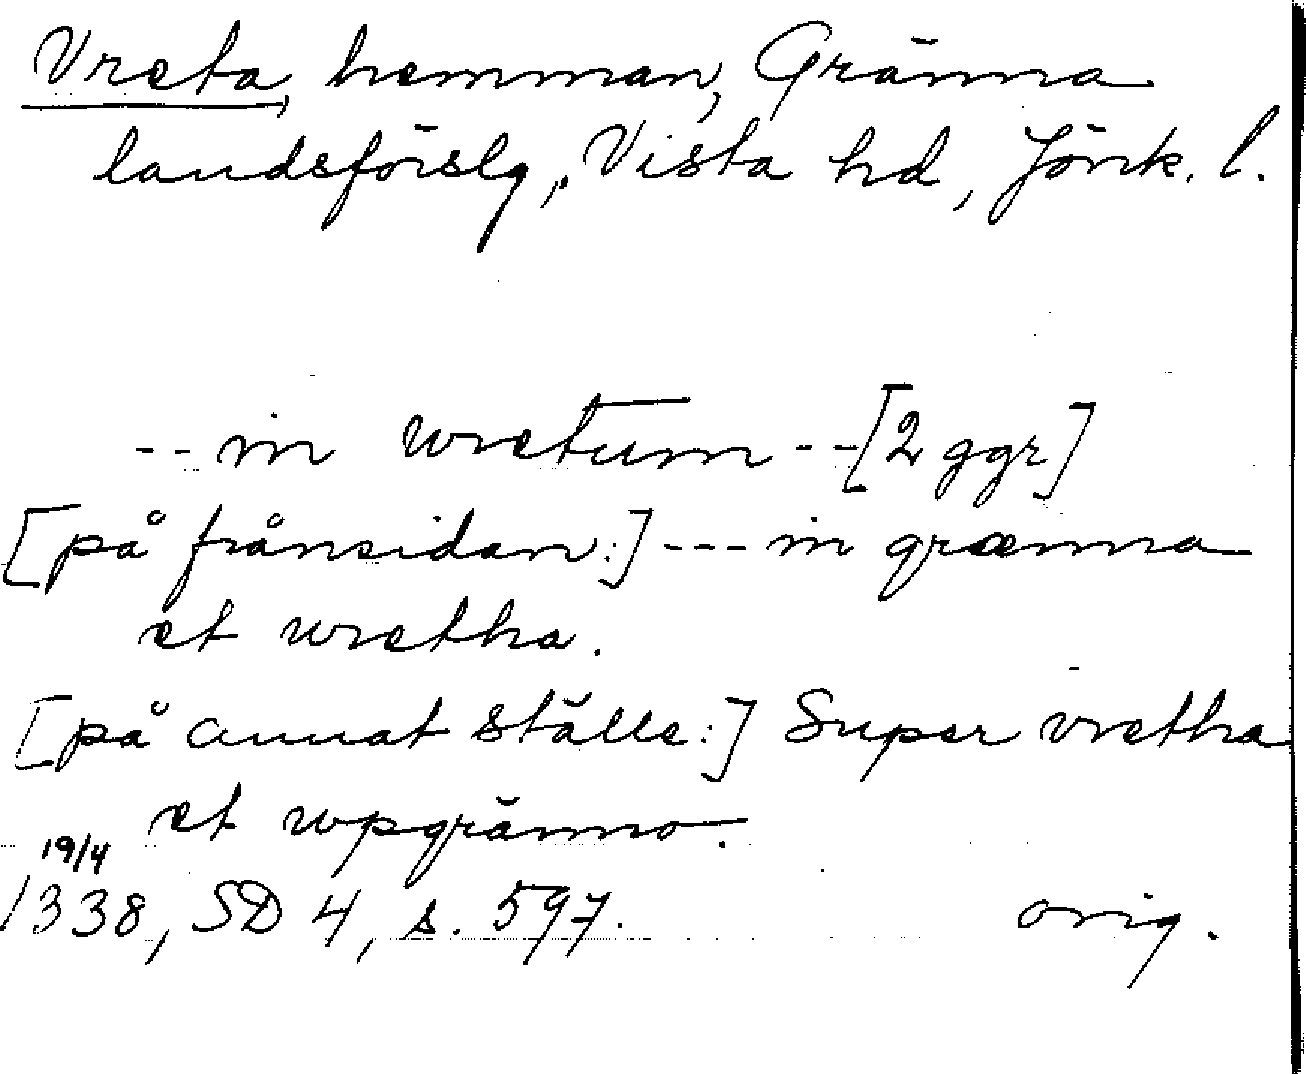 Vreta, hemman, Gränna
landsförslg, Vista hd, Jönk. l.
-- in wretum -- [2 ggr]
[på frånsidan:] --- in grænna
et wretha.
[på annat ställe:] Super vretha
et wpgränno.
19/4
1338, SD 4, s. 597. orig.